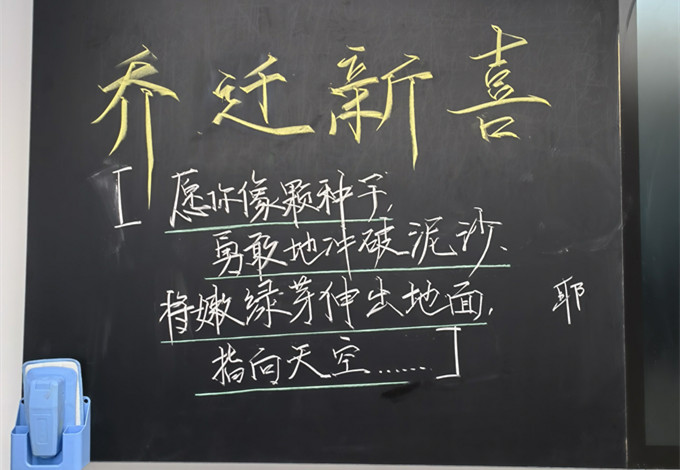 乔迁新喜
[愿你像颗种子,
勇敢地冲破泥沙、
将嫩绿芽伸出地面,
指向天空……]
耶